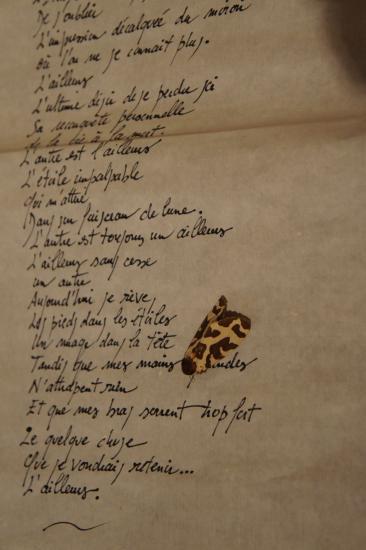 De j'oublier
L'impression décalquée du miroir
Où l'on ne se connaît plus.
L'ailleurs
L'ultime déjà de je perdu ici
Sa reconquête personnelle
Je le lie à la mort.
L'autre est l'ailleurs
L'étoile impalpable
Qui m'attire
Dans un faisceau de lune.
L'autre est toujours un ailleurs
L'ailleurs sans cesse
un autre
Aujourd'hui je rêve,
Les pieds dans les étoiles
Un nuage dans la tête
Tandis que mes mains
N'attrapent rien
Et que mes bras serrent trop fort
Le quelque chose
Que je voudrais retenir...
L'ailleurs.